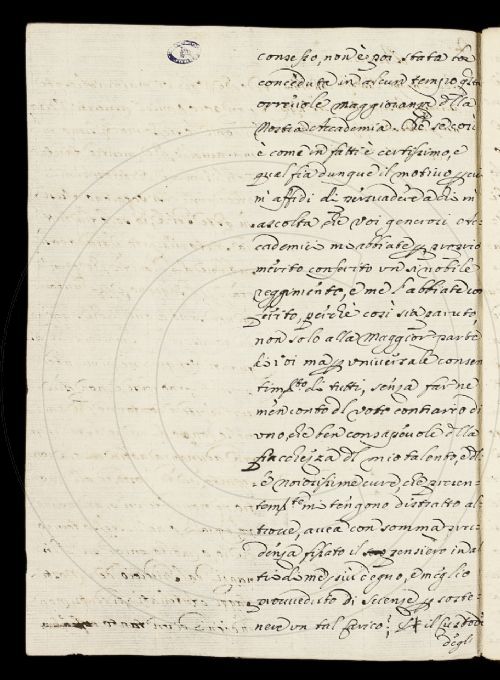 consesso, non è poi stata
conceduta in alcun tempo
orrevole maggioranza della
Nostra Accademia. Che se così
è come in fatti è certissimo, e
qual fia dunque il motivo per cui
m'affidi di persuadere a chi mi
ascolta che voi generosi Ac-
cademici m'abbiate per proprio
merito conferito un sì nobile
reggimento, e me l'abbiate con-
ferito, perchè così sia paruto
non solo alla Maggior parte
di voi ma per universale consen-
timto di tutti, senza far ne
men conto del voto contrario di
uno, che ben consapevole della
fiacchezza del mio talento, e del-
le noiosissime cure, che presen-
temte m tengono distratto al-
trove, avea con somma pru-
denza fissato il pensiero in al-
tri di me più degno, e meglio
provveduto di Scienze per soste-
nere un tal carico? il Custode
degl